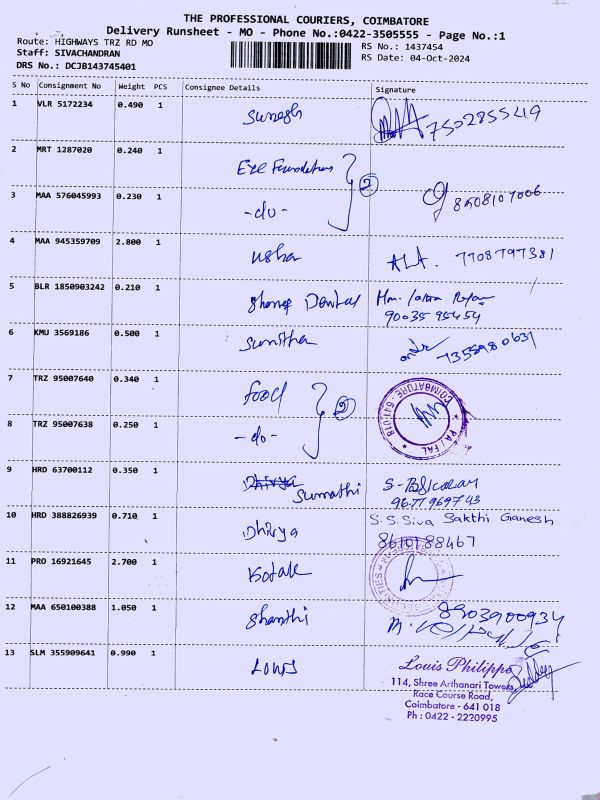 THE PROFESSIONAL COURIERS, COIMBATORE
Delivery Runsheet - MO - Phone No.:0422-3505555 - Page No.:1
Route: HIGHWAYS TRZ RD MO
RS No.: 1437454
Staff: SIVACHANDRAN
RS Date: 04-Oct-2024
DRS No.: DCJB143745401
S No Consignment No Weight PCS Consignee Details Signature
1 VLR 5172234 0.490 1 Suresh 7502855419
2 MRT 1287020 0.240 1 Eye Foundation
3 MAA 576045993 0.230 1 -do- 2 8508107006
4 MAA 945359709 2.800 1 Usha ALA. 7708797381
5 BLR 1850903242 0.210 1 Dental
90035 95454
6 KMU 3569186 0.500 1 Sunitha 7355980631
7 TRZ 95007640 0.340 1 food
8 TRZ 95007638 0.250 1 -do- 2 COIMBATORE - 641 018
9 HRD 63700112 0.350 1 Dhivya Sumathi
9677969743
10 HRD 388826939 0.710 1 Dhivya S.S.Siva Sakthi Ganesh
8610188467
11 PRO 16921645 2.700 1 Kotak
12 MAA 650100388 1.050 1 Shanthi 8903900934
13 SLM 355909641 0.990 1 Louis
Louis Philippe
114, Shree Arthanari Towers,
Race Course Road,
Coimbatore - 641 018
Ph : 0422 - 2220995